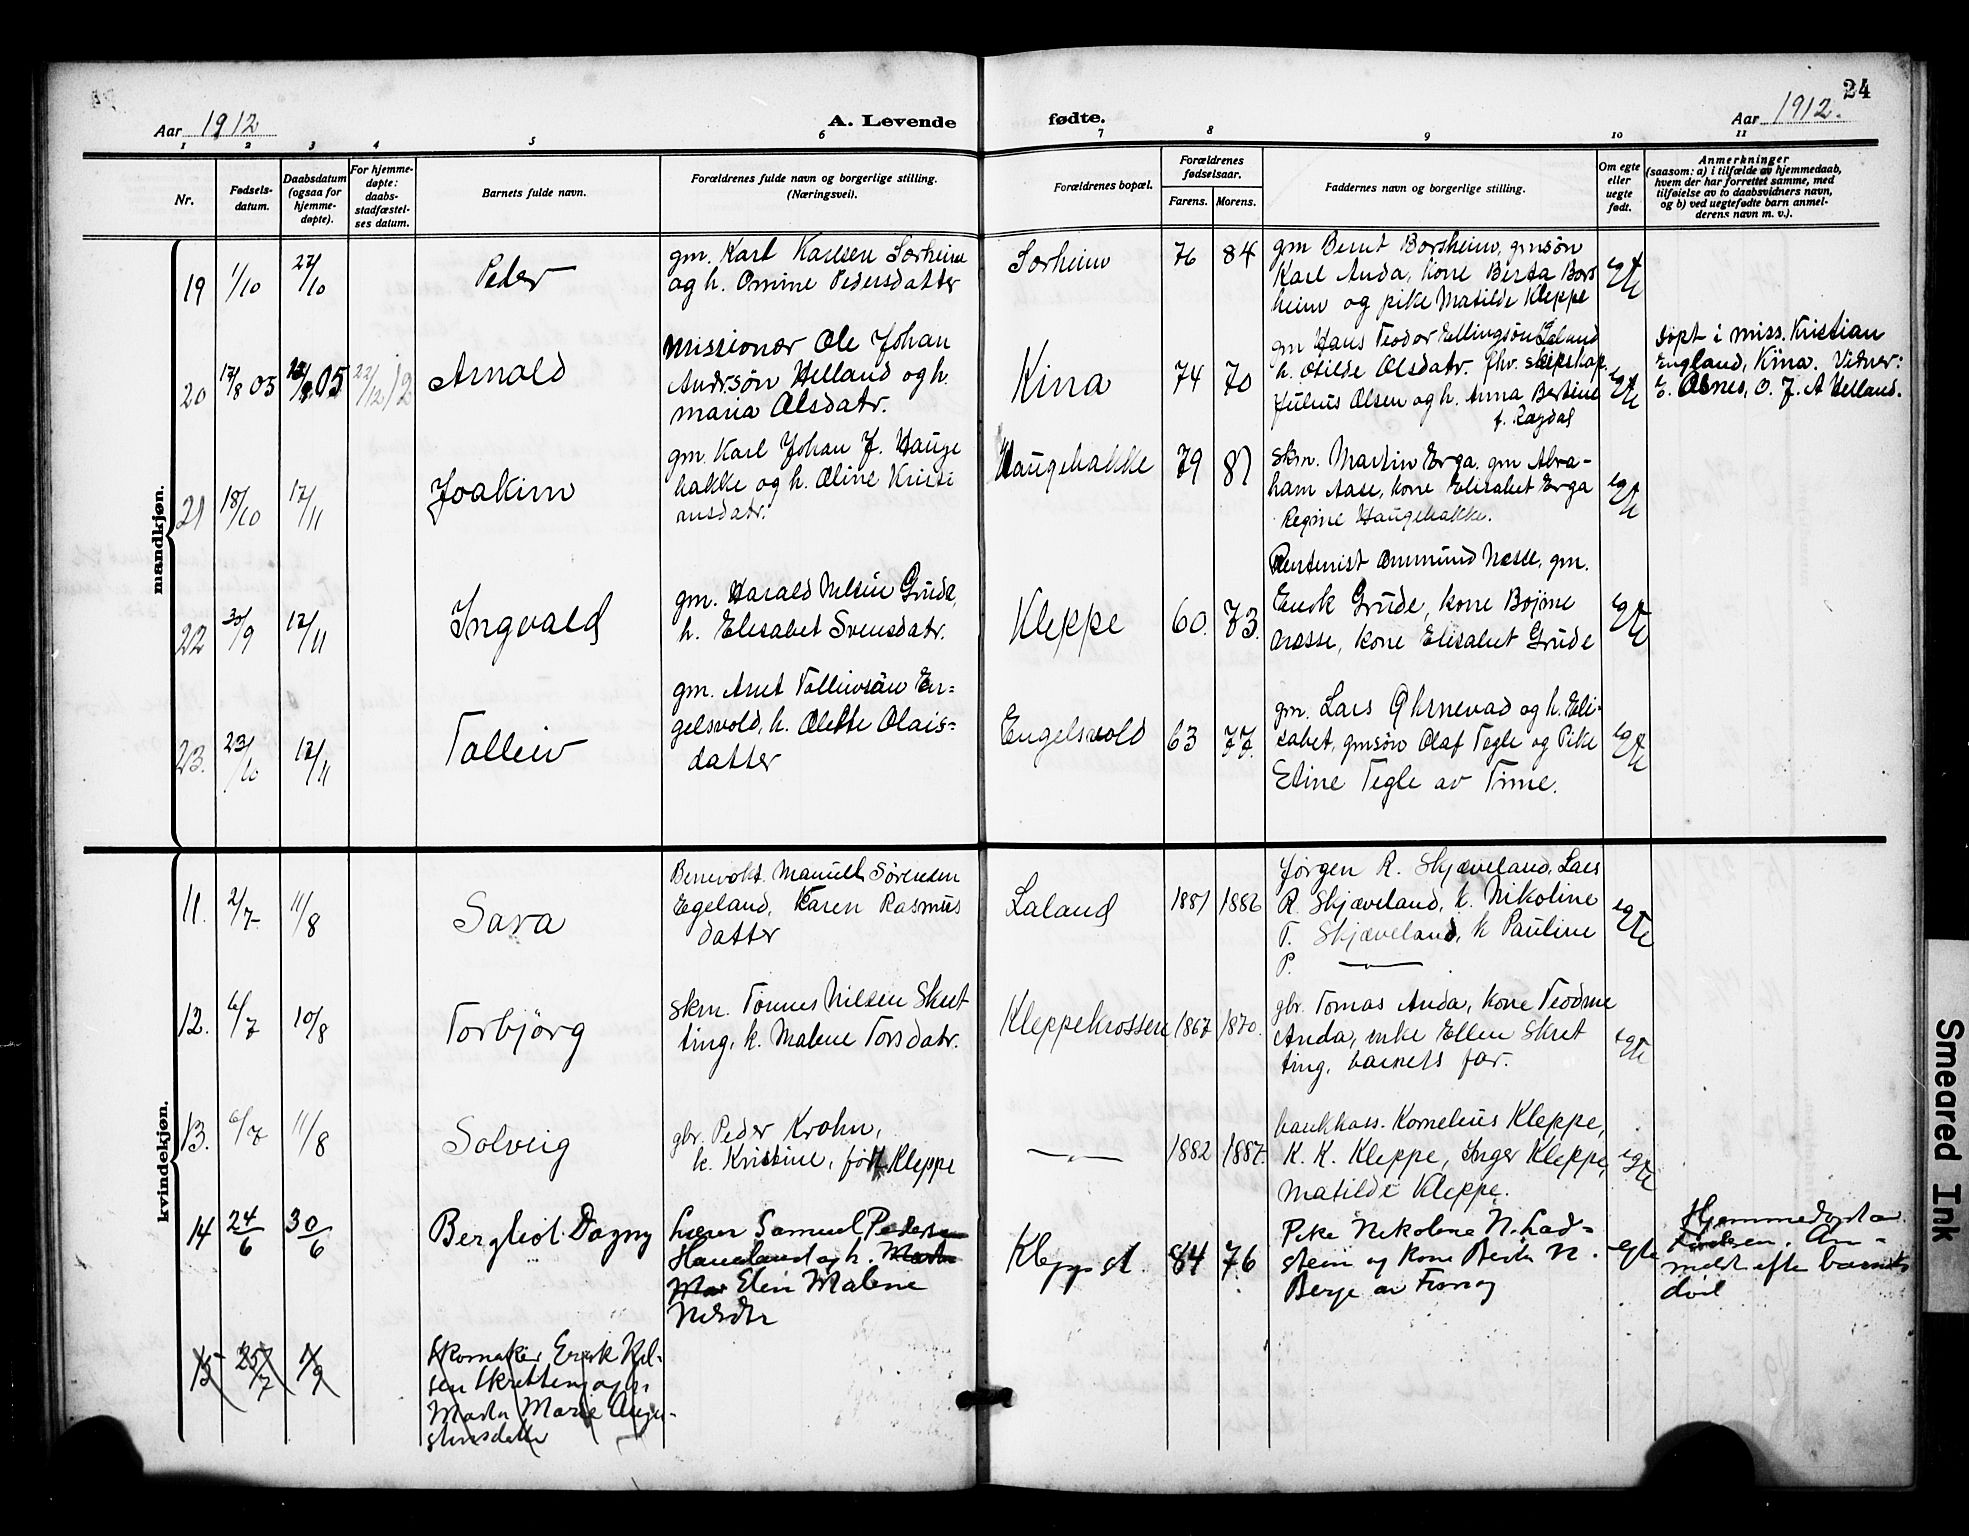 24
Aar 1912
A. Levende
fødte.
Aar 1912.
1 2 3 4 5 6 7 8 9 10 11
Nr.
Fødsels-
datum.
Daabsdatum
(ogsaa for
hjemme-
døpte).
For hjemme-
døpte:
daabs-
stadfæstel-
ses datum.
Barnets fulde navn.
Forældrenes fulde navn og borgerlige stilling.
(Næringsvei).
Forældrenes bopæl.
Forældrenes
fødselsaar.
Farens. Morens.
Faddernes navn og borgerlige stilling.
Om egte
eller
uegte
født.
Anmerkninger
(saasom: a) i tilfælde av hjemmedaab,
hvem der har forrettet samme, med
tilføielse av to daabsvidners navn,
og b) ved uegtefødte barn anmel-
derens navn m. v.).
mandkjøn.
19 1/10 27/10 Peder
gm. Karl Karlsen Sørheim
og h. Omine Pedersdatter
Sørheim 76 84
gm Bernt Borsheim, gmsøn
Karl Anda, kone Berta Bors
heim og pike Matilde Kleppe
egte
20 17/8 05 05 22/12 12 Arnold
Missionær Ole Johan
Andrsøn Helland og h.
Maria Olsdatr.
Kina 74 70
gm Hans Teodor Ellingsøn Laland
h. Otilde Olsdatr.
Julius Olsen og h. Anna Bertine
f. Rægdal
egte
Døpt i miss. Kristian
England, Kina. Vidner:
E. Aanes, O. J. A Helland.
21 18/10 17/11 Joakim
gm. Karl Johan J. Hauge
bakke og h. Oline Kristi
ansdatr.
Haugebakke 79 87
Skm. Martin Erga. gm Abra-
ham Aase, kone Elisabet Erga
Regine Haugebakke.
egte
22 30/9 17/11 Ingvald
gm. Harald Nilsen Grude,
h. Elisabet Svensdatr.
Kleppe 60. 73.
Ommund Næsse, gm.
Enok Grude, kone
Næsse, kone Elisabet Grude
egte
23. 23/10 17/11 Tolleiv
gm. Arnt Tolleivsøn En=
gelsvold, h. Olette Olais=
datter
Engelsvold 63 77.
gm. Lars Øksnevad og h. Eli-
sabet, gmsøn Olaf Tegle og Pike
Eline Tegle av Time.
egte
kvindekjøn.
11. 2/7 11/8 Sara
Manuell Sørensen
Egeland, Karen Rasmus
datter
Laland 1887 1886
Jørgen R. Skjæveland, Lars
R. Skjæveland, k. Nikoline
T. Skjæveland, k Pauline
P. —
egte
12. 6/7 10/8 Torbjörg
Skm. Tønnes Nilsen Skret
ting, k. Malene Torsdatr.
Kleppekrossen 1867 1870.
gbr. Tomas Anda, kone Teodine
Anda, enke Ellen Skret
ting, barnets far.
egte
13. 6/7 11/8 Solveig
gbr. Peder Krohn,
k. Kristine, født Kleppe
— 1882 1887.
bankkass. Kornelius Kleppe,
K. K. Kleppe, Inger Kleppe,
Matilde Kleppe.
egte
14 24/6 30/6 Bergliot Dagny
Lærer Samuel Pedersen
Haueland og h.
Elen Malene
Nilsdtr
Klepp st. 84 76
Pike Nikoline N. Lad=
stein og Kone Berta N.
Berge av Finnøy
egte
Hjemmedøpt av
An-
meldt efter barnets
død
15 25/7 1/9
Skomaker Enok Nil-
sen Skretting og h.
Marta Marie Augu-
stinsdatter
Smeared Ink